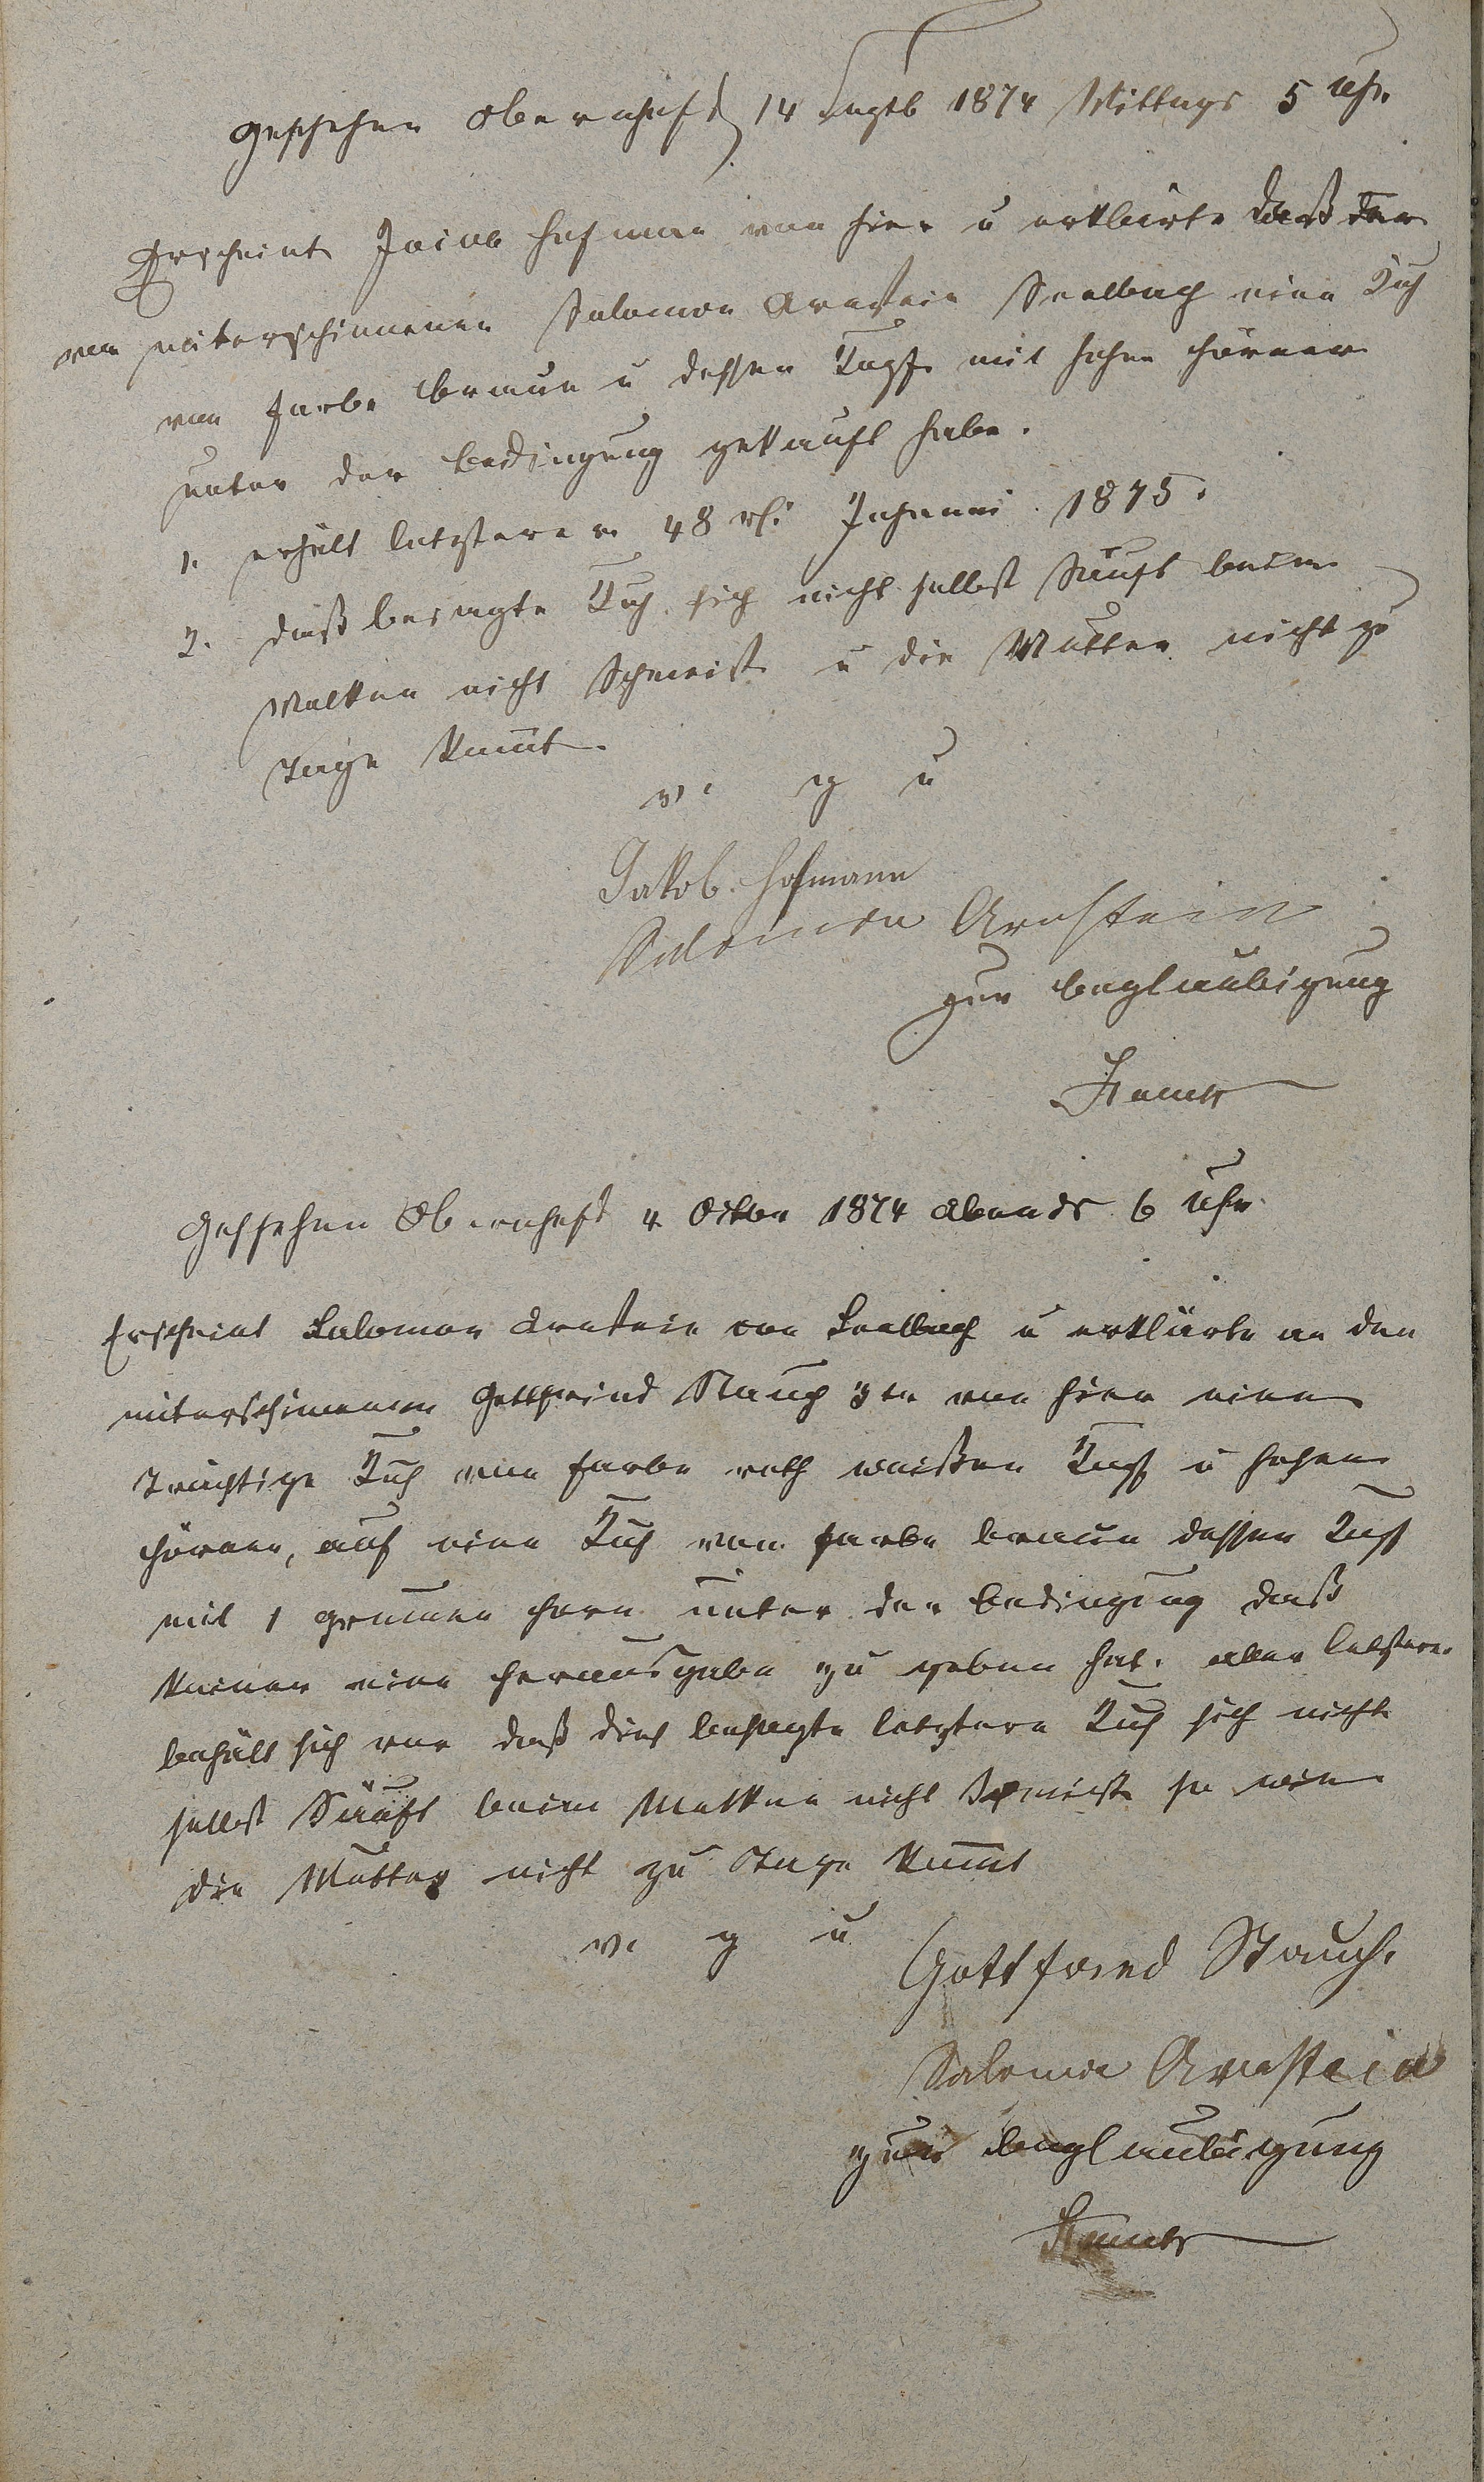 Geschehen Obernhof 14 Septb 1874 Mittags 5 Uhr.
Erscheint Jacob Hofman von hier u erklärte daß der
von miterschinenen Salomon Arnstein Seelbach eine Kuh
von Farbe braun u dessen Kopf mit hohen Hörner
unter der Bedingung gekauft habe.
1. erhält letzterer 48 rh: Johanni 1875.
2. daß besagte Kuh sich nicht selbst Säuft beim
Melken nicht Schmeist u die Mutter nicht zu
Tage kommt.
v. g u
Jakob Hofmann
Salomon Arnstein
zur beglaubigung
Geschehen Obernhof 4 Octbr 1874 Abends 6 Uhr
Erscheint Salomon Arnstein von Seelbach u erklärte an den
miterschinenen Gottfried Stauch 3te von hier eine
Trächtige Kuh von Farbe roth weißen Kopf u hohen
Hörner, auf eine Kuh von Farbe braun dessen Kopf
mit 1 Horn unter der Bedingung daß
keiner eine Herausgabe zu geben hat. aber letzterer
behält sich vor daß die besagte letztere Kuh sich nicht
selbst Säuft beim Melken nicht Schmeist so wie
die Mutter nicht zu Tage kommt
v. g u
Gottfried Stauch.
Salomon Arnstein
zur beglaubigung